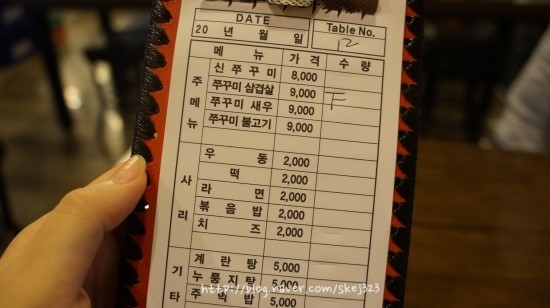 DATE
Table No.
20 년 월 일
12
메뉴 가격 수량
주메뉴
신쭈꾸미 8,000
쭈꾸미 삼겹살 9,000
쭈꾸미 새우 9,000
쭈꾸미 불고기 9,000
사리
우동 2,000
떡 2,000
라면 2,000
볶음밥 2,000
치즈 2,000
기타
계란탕 5,000
누룽지탕 5,000
주먹밥 5,000
http://blog.naver.com/skej323